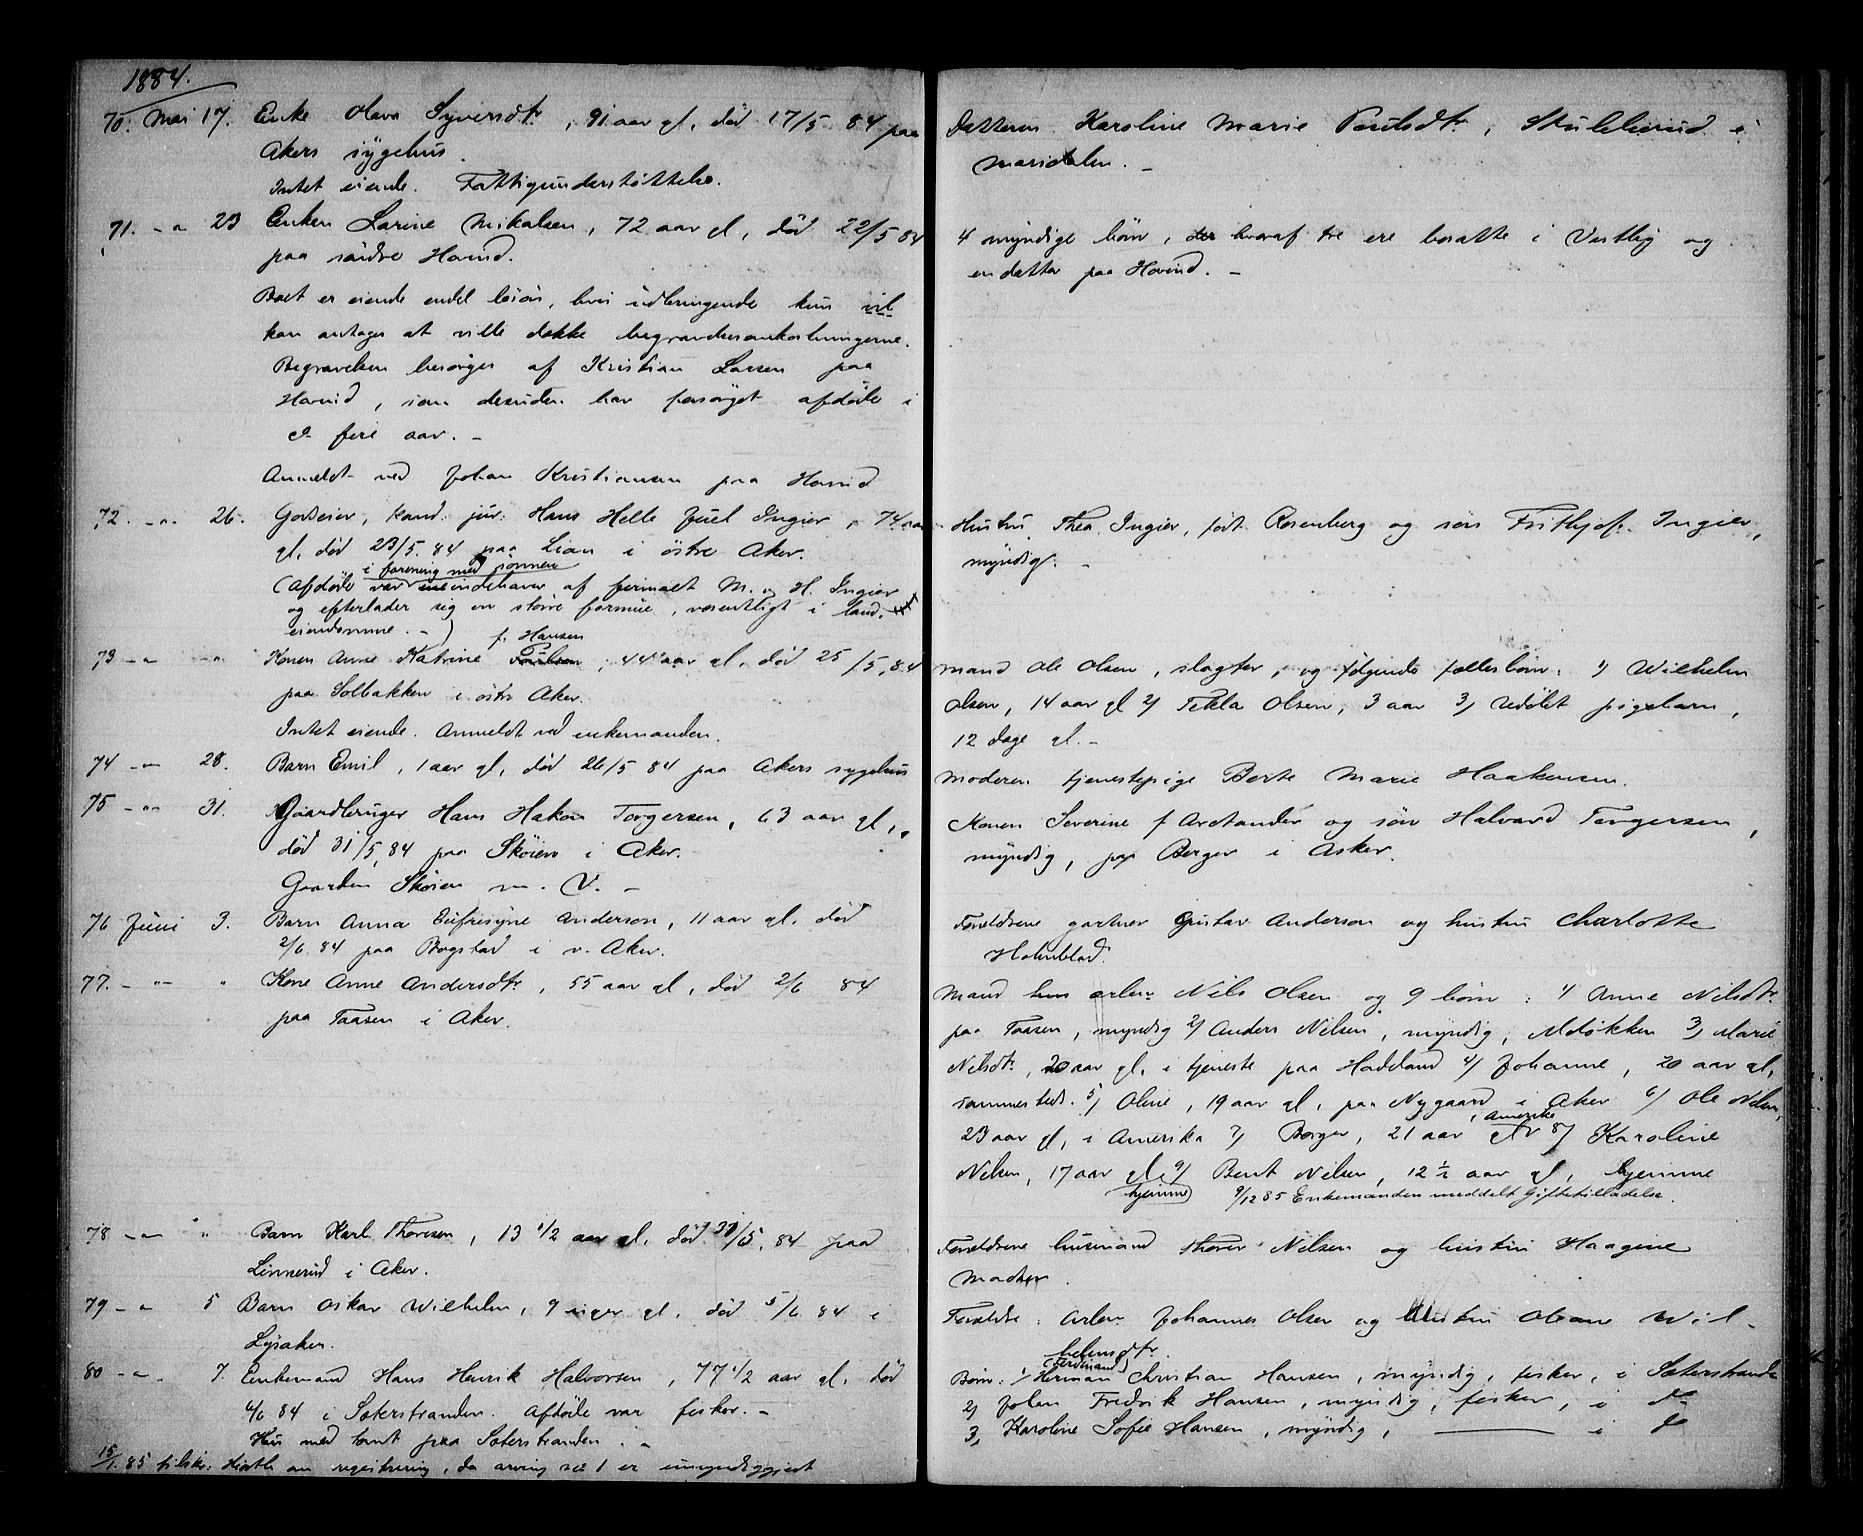 1884.
70. Mai 17. Enke Olava Syversdtr, 91 aar gl, død 17/5 84 paa
Akers sygehus.
Intet eiende. Fattigunderstøttelse.
Datteren Karoline Marie Paulsdtr, Skullerud i
Maridalen. –
71. – " – 23 Enken Larine Mikalsen, 72 aar gl, død 22/5 84
paa søndre Hovind.
Boet er eiende endel løsøre, hvis udbringende kun
kan antages at ville dække begravelsesomkostningerne.
Begravelsen besørges af Kristian Larsen paa
Hovind, som desuden har forsørget afdøde i
fire aar. –
Anmeldt ved Johan Kristiansen paa Hovind
4 myndige børn, hvoraf tre ere bosatte i Vestby og
en datter paa Hovind. –
72. – " – 26. Godseier, kand. jur. Hans Helle Juel Ingier, 74 aar
gl, død 23/5 84 paa Lian i østre Aker.
i forening med sønnen
(Afdøde var indehaver af firmaet M. og H. Ingier
og efterlader sig en større formue, væsentligt i land-
eiendomme. –)
Hustru Thea Ingier, født Rosenberg og søn Frithjof Ingier,
myndig. –
f. Hansen
73 – " – " Konen Anne Katrine, 44 aar gl, død 25/5 84
paa Solbakken i østre Aker.
Intet eiende. Anmeldt ved enkemanden.
Mand Ole Olsen, slagter, og følgende fællesbørn: 1) Wilhelm
Olsen, 14 aar gl 2) Tekla Olsen, 3 aar 3) Udøbt pigebarn,
12 dage gl. –
74 – " – 28. Barn Emil, 1 aar gl, død 26/5 84 paa Akers sygehus
Moderen tjenestepige Berte Marie Haakensen.
75 – " – 31. Gaardbruger Hans Hakon Torgersen, 63 aar gl,
død 31/5 84 paa Skøien i Aker.
Gaarden Skøien m. V. –
Konen Severine f. Arctander og søn Halvard Torgersen,
myndig, paa Berger i Asker.
76 Juni 3. Barn Anna Eufrosyne Anderson, 11 aar gl. død
2/6 84 paa Bogstad i v. Aker.
Forældrene gartner Gustav Anderson og hustru Charlotte
Holmblad.
77. – " – " Kone Anne Andersdtr, 55 aar gl, død 2/6 84
paa Taasen i Aker.
Mand arbm Nils Olsen og 9 børn: 1) Anne Nilsdtr
paa Taasen, myndig 2) Anders Nilsen, myndig, 3) Marie
Nilsdtr, 20 aar gl, i tjeneste paa Hadeland 4) Johanne, 20 aar gl,
sammesteds. 5) Oline, 19 aar gl, paa Nygaard i Aker 6) Ole Nilsen,
23 aar gl, i Amerika 7) Borger, 21 aar i Amerika 8) Karoline
Nilsen, 17 aar gl, hjemme 9) Bent Nilsen, 12 1/2 aar gl, hjemme
9/12 85 Enkemanden meddelt Giftetilladelse.
78 – " – " Barn Karl Thoresen, 13 1/2 aar gl, død 31/5 84 paa
Linnerud i Aker.
Forældrene husmand Thorer Nilsen og hustru Haagine
79 – " – 5 Barn Oskar Wilhelm, 9 uger gl, død 5/6 84 i
Lysaker.
Forældre: Arbm Johannes Olsen og hustru Oleane Wil-
helmsdtr.
80 – " – 7. Enkemand Hans Henrik Halvorsen, 77 1/2 aar gl, død
4/6 84 i Sæterstranden. Afdøde var fisker. –
Hus med tomt paa Sæterstranden. –
15/1 85 tilskr. Hirth om registrering, da arving No 1 er umyndiggjort
(Ferdinand)
Børn: 1) Herman Christian Hansen, myndig, fisker, i Sæterstranden
2) Johan Fredrik Hansen, myndig, fisker, i do
3) Karoline Sofie Hansen, myndig, – i do